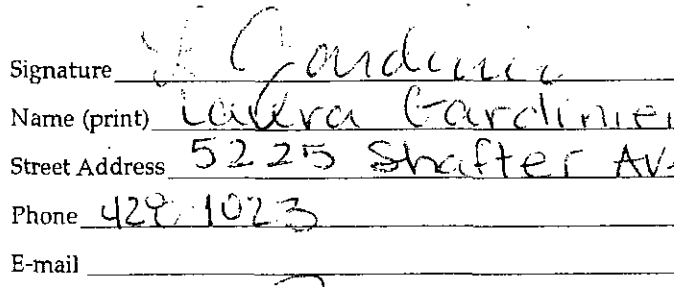 Signature L Gardinie
Name (print) Laura Gardinier
Street Address 5225 Shafter Av
Phone 428 1023
E-mail